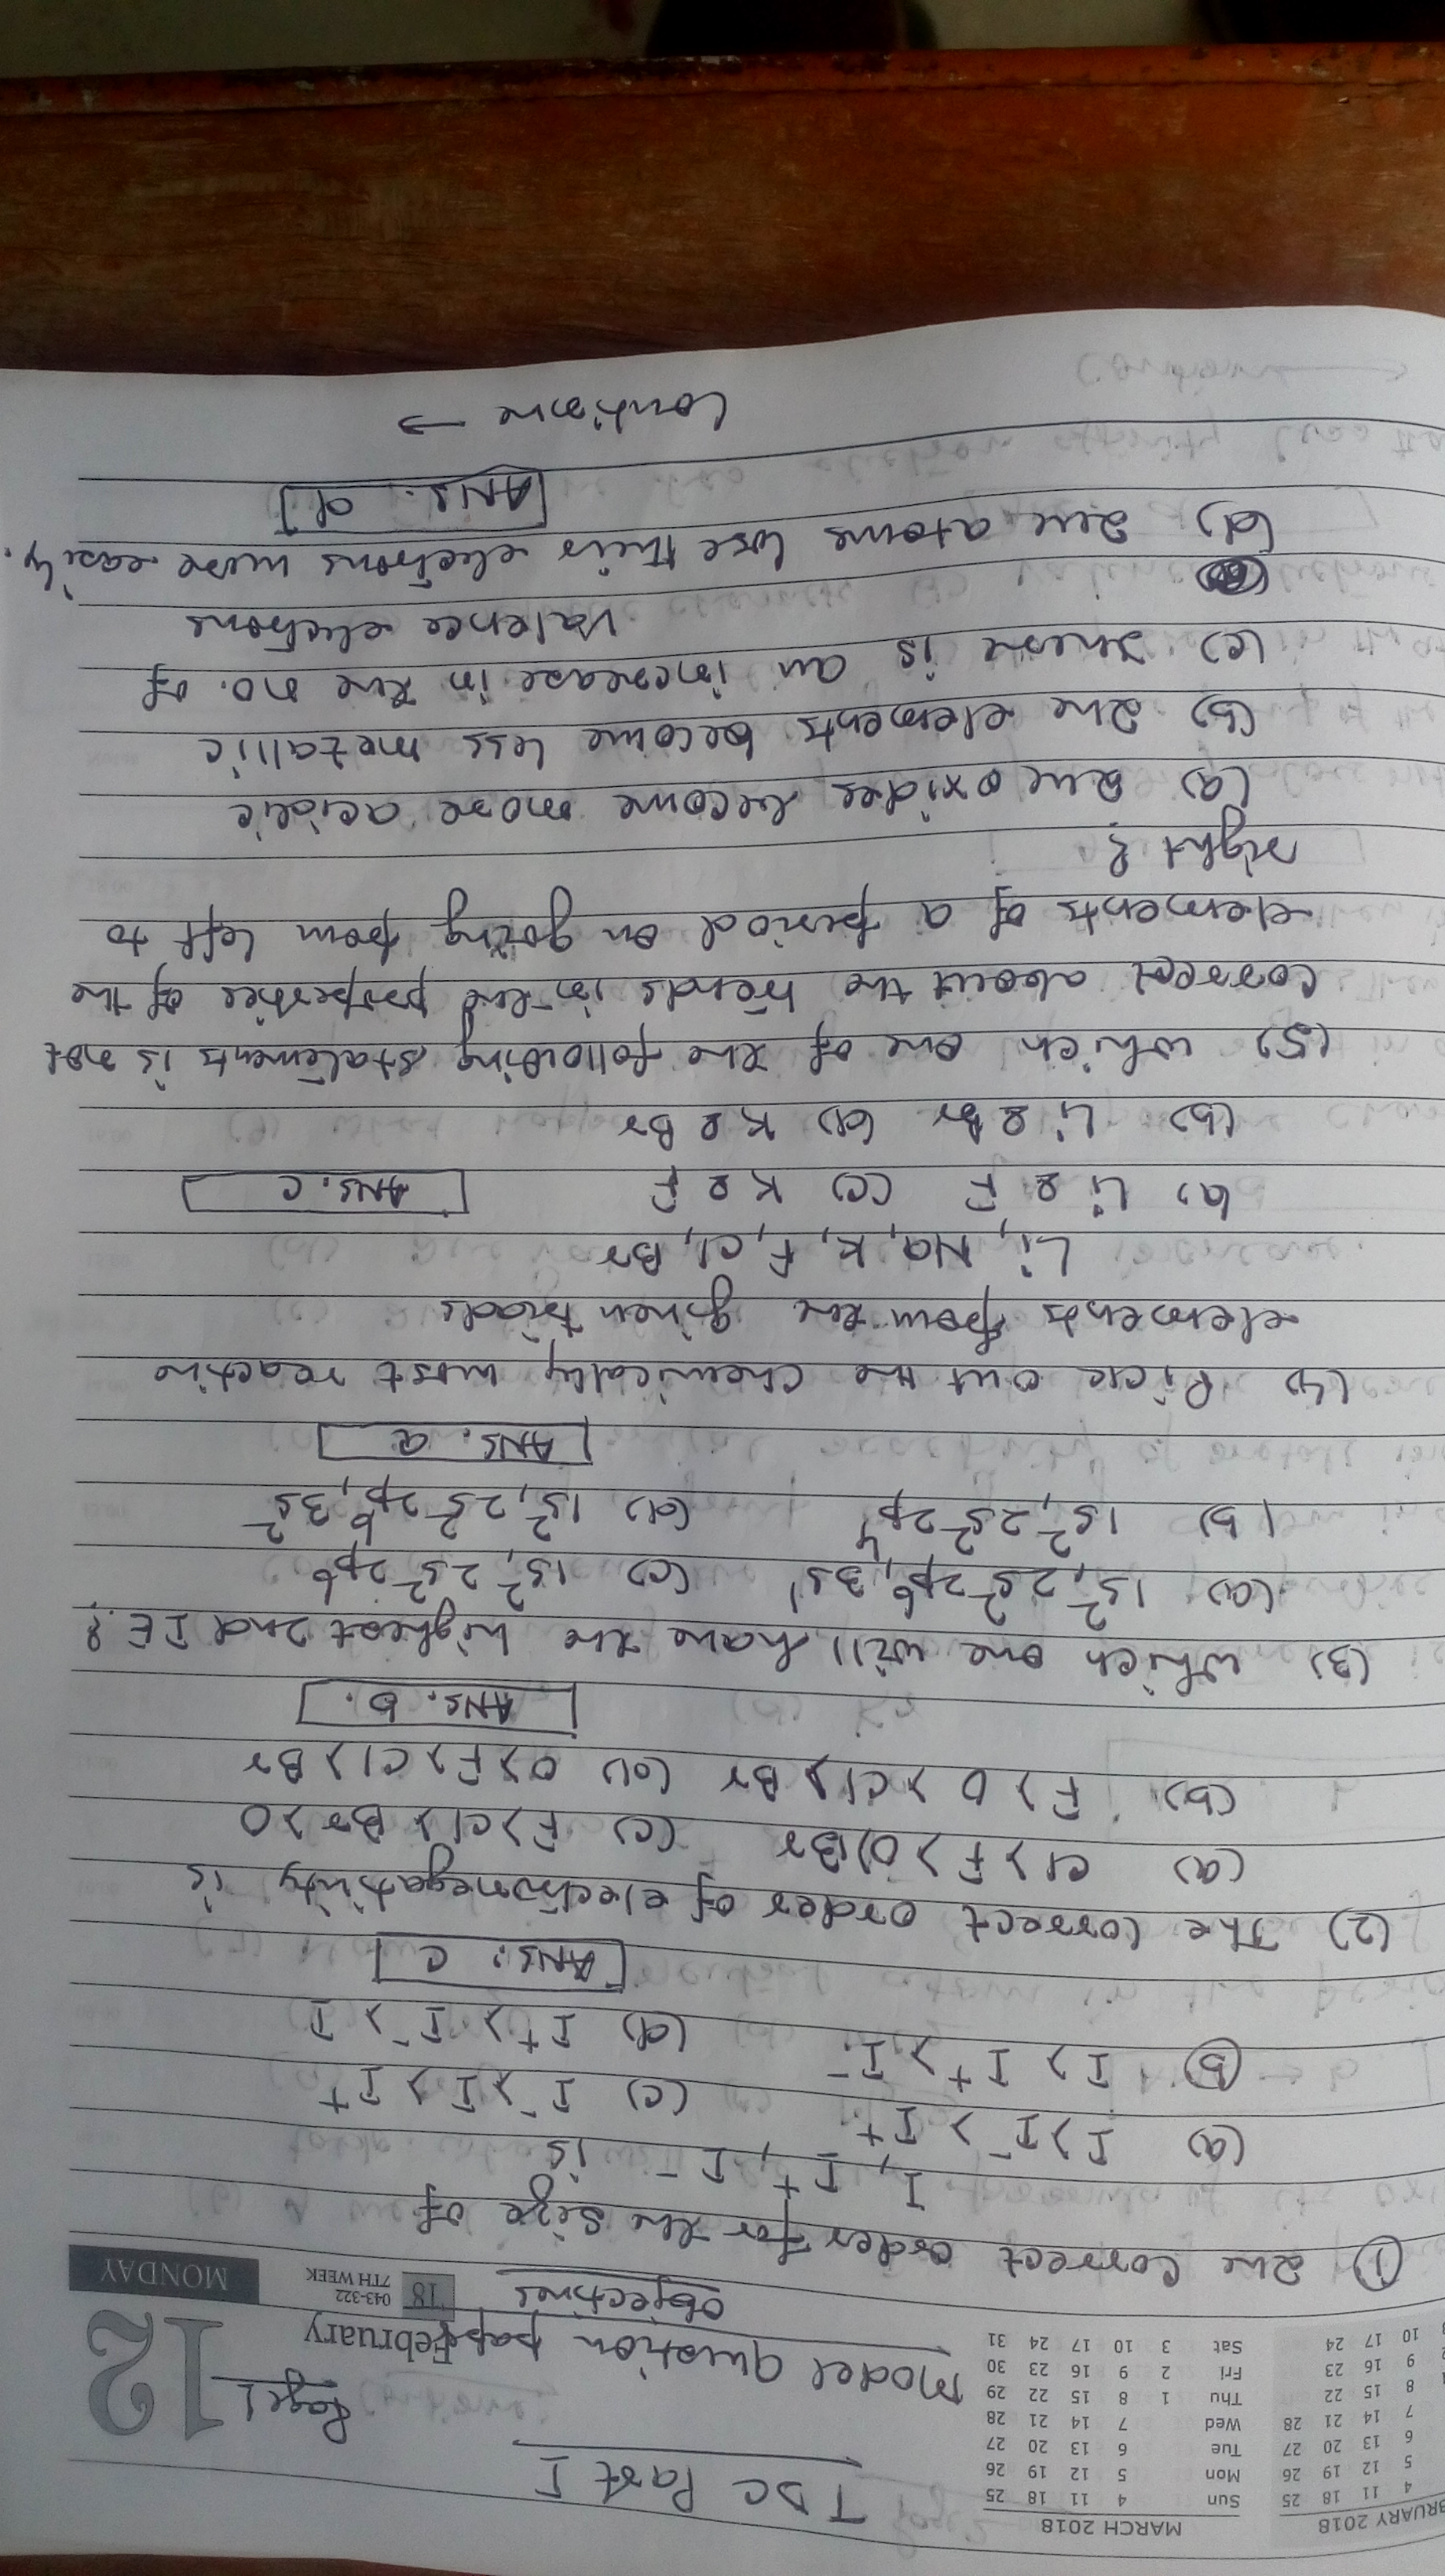 FEBRUARY 2018
4 11 18 25
5 12 19 26
6 13 20 27
7 14 21 28
1 8 15 22
2 9 16 23
3 10 17 24
MARCH 2018
Sun 4 11 18 25
Mon 5 12 19 26
Tue 6 13 20 27
Wed 7 14 21 28
Thu 1 8 15 22 29
Fri 2 9 16 23 30
Sat 3 10 17 24 31
TDC Part I
Page 1
12
February
18
043-322
7TH WEEK
MONDAY
Model question paper
objectives
(1) The correct order for the size of
I, I+, I- is
(a) I > I- > I+ (c) I- > I > I+
(b) I > I+ > I- (d) I+ > I- > I
[ANS. c]
(2) The correct order of electronegativity is
(a) Cl > F > O > Br (c) F > Cl > Br > O
(b) F > O > Cl > Br (d) O > F > Cl > Br
[ANS. b.]
(3) Which one will have the highest 2nd I E?
(a) 1s², 2s² 2p⁶, 3s¹ (c) 1s², 2s² 2p⁶
(b) 1s², 2s² 2p⁴ (d) 1s², 2s² 2p⁶, 3s²
[ANS. a]
(4) Pick out the chemically most reactive
elements from the given triads
Li, Na, K, F, Cl, Br
(a) Li & F (c) K & F [ANS. C]
(b) Li & Br (d) K & Br
(5) Which one of the following statements is not
correct about the trends in the properties of the
elements of a period on going from left to
right?
(a) The oxides become more acidic
(b) The elements become less metallic
(c) There is an increase in the no. of
valence electrons
(d) The atoms lose their electrons more easily.
[ANS. d]
Continue →